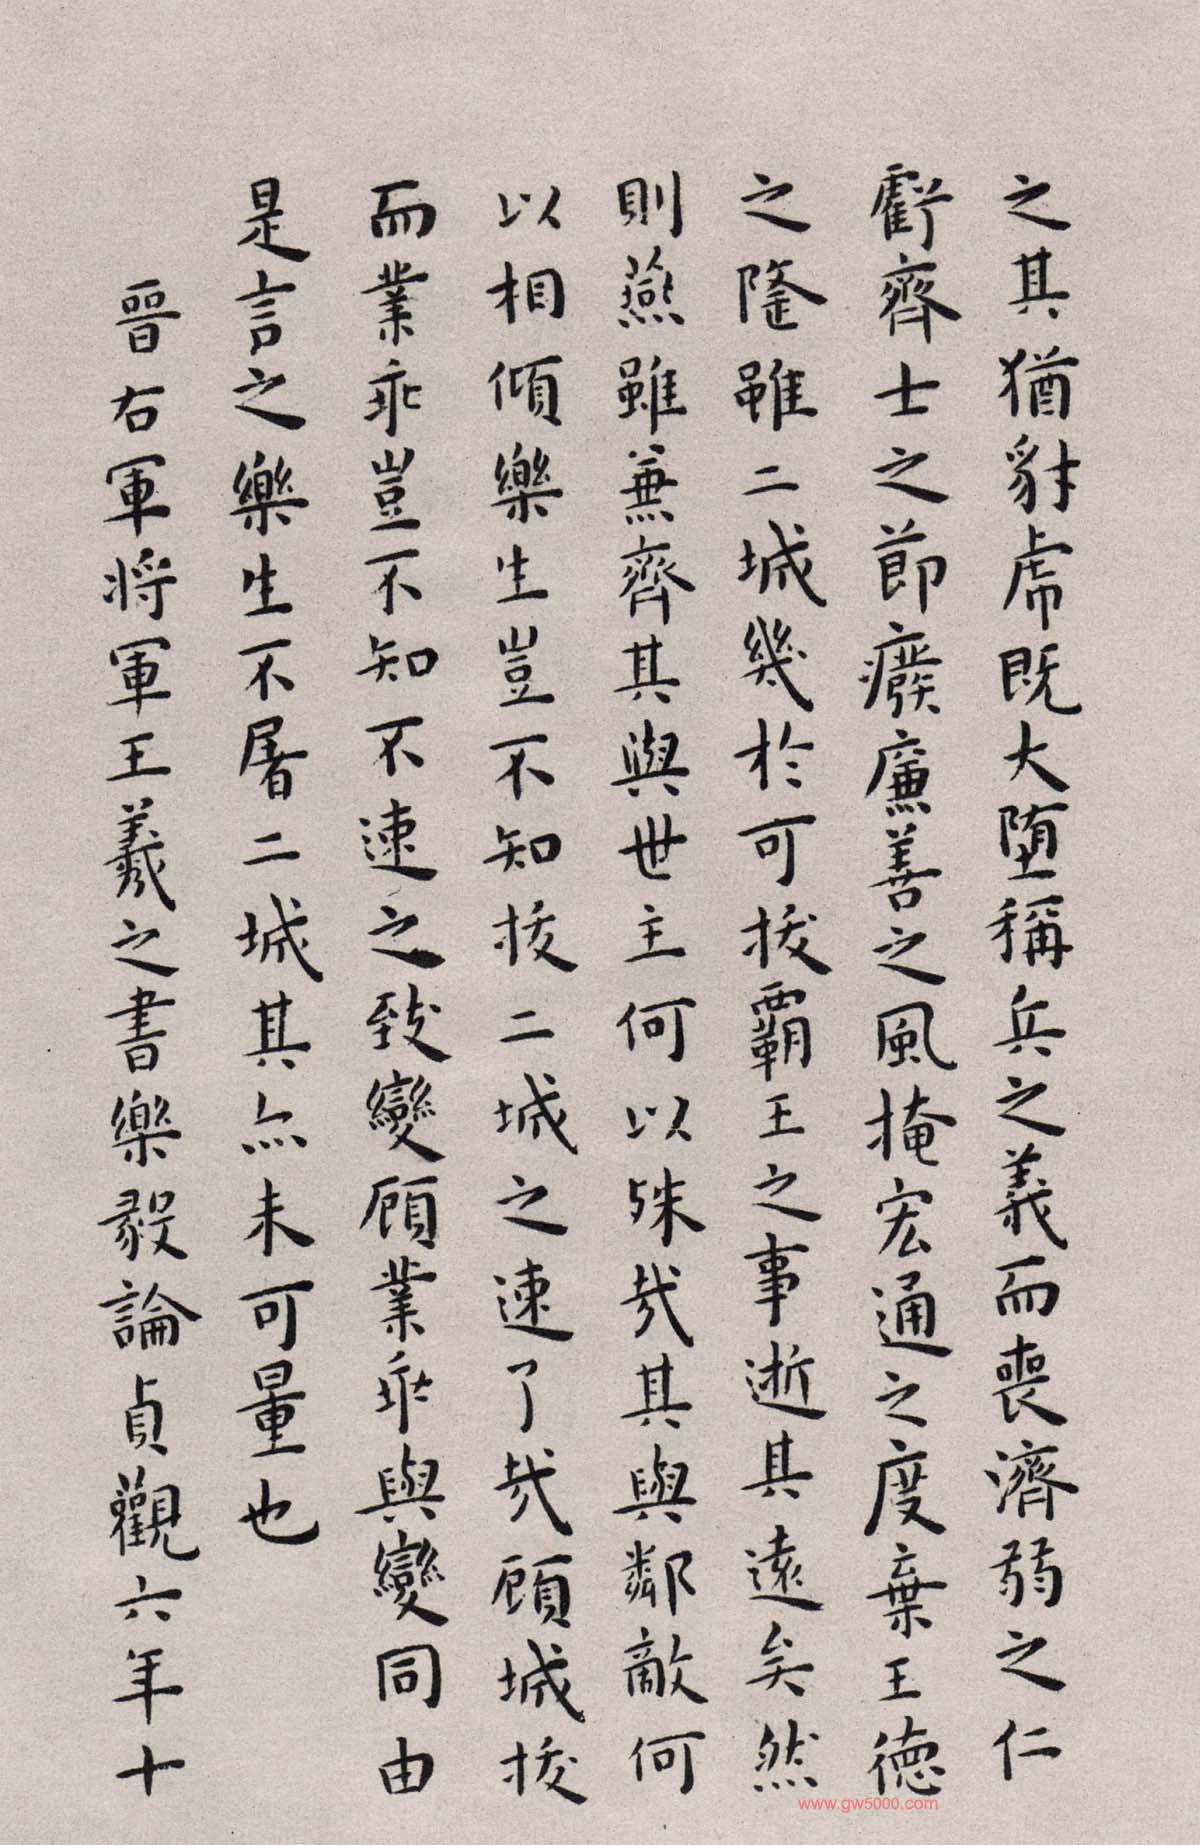 之其猶豺虎既大堕稱兵之義而喪濟弱之仁
虧齊士之節癈廉善之風掩宏通之度棄王德
之隆雖二城幾於可拔霸王之事逝其遠矣然
則燕雖兼齊其與世主何以殊哉其與鄰敵何
以相傾樂生豈不知拔二城之速了哉顧城拔
而業乖豈不知不速之致變顧業乖與變同由
是言之樂生不屠二城其亦未可量也
晉右軍将軍王羲之書樂毅論貞觀六年十
www.gw5000.com